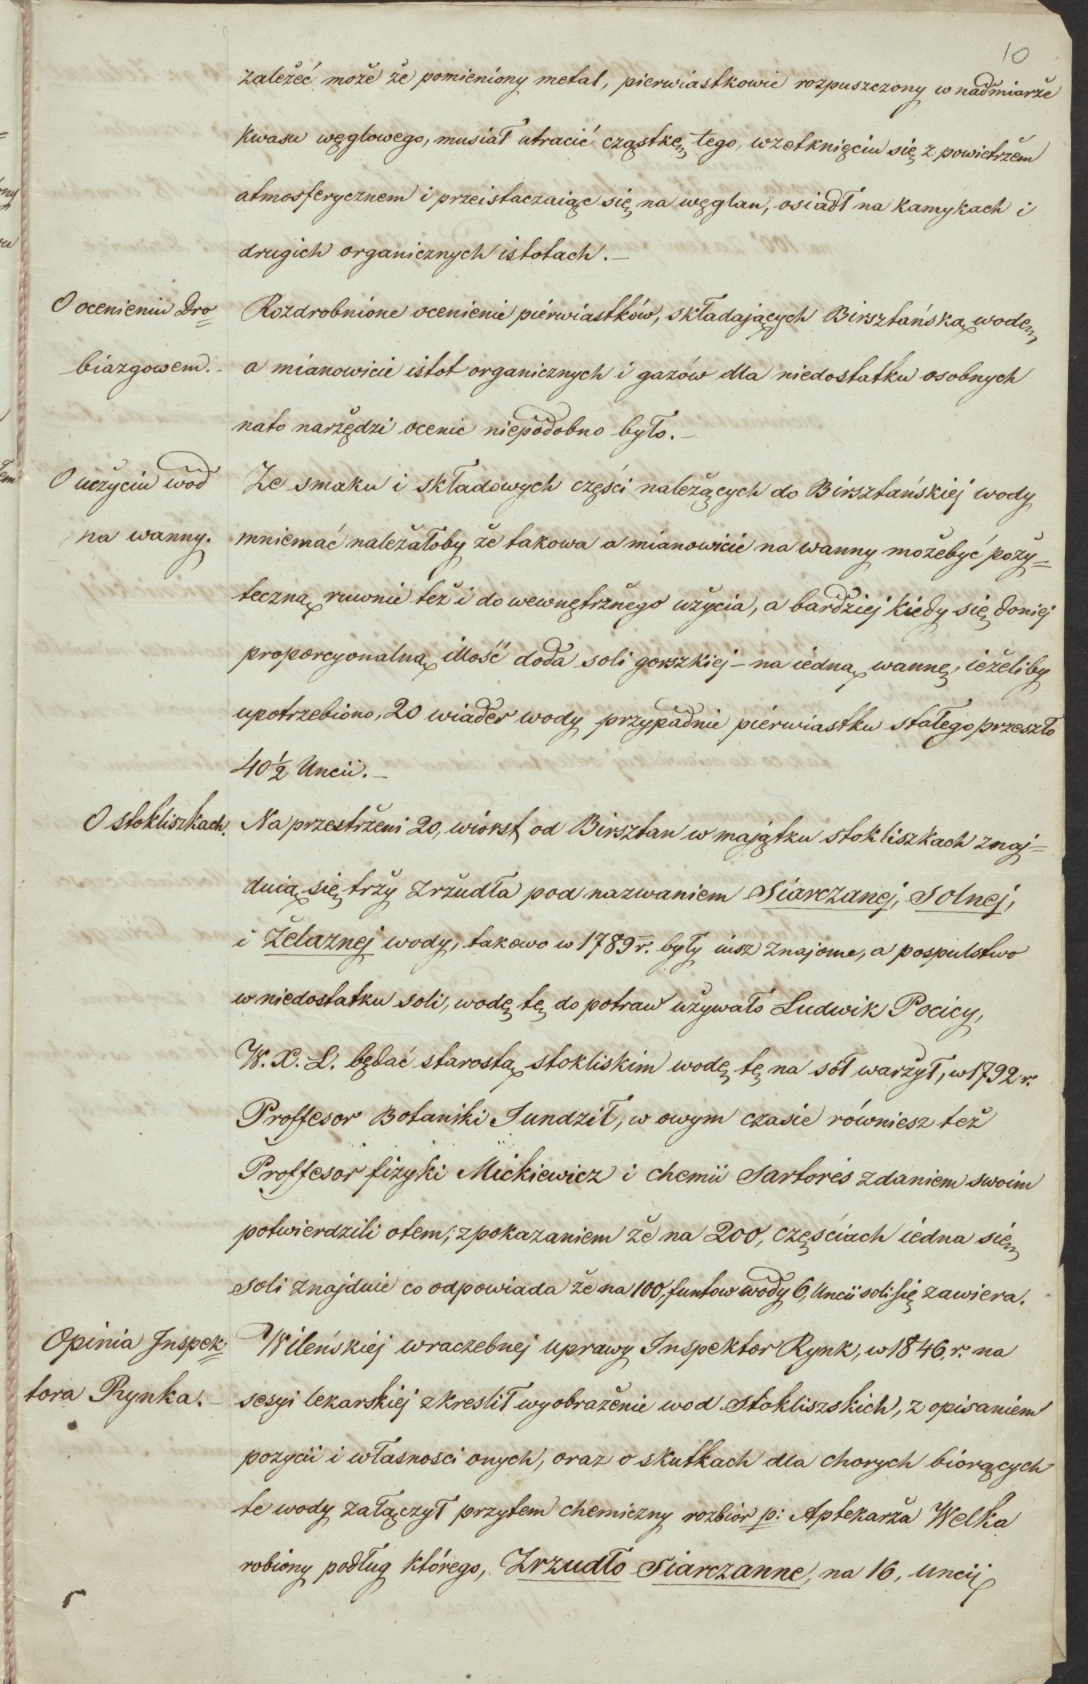 10
zależeć może że pomieniony metal, pierwiastkowie rozpuszczony w nadmiarże
kwasu węglowego, musiał utracić cząstkę tego, wzetknięciu się z powietrzem
atmosferycznem i przeistaczaiąc się na węglan, osiadł na kamykach i
drugich organicznych istotach. —
O ocenieniu Dro=
biazgowem. -
Rozdrobnione ocenienie piérwiastków, składających Birsztańską wodę,
a mianowicie istot organicznych i gazów dla niedostatku osobnych
nato narzędzi ocenic niepodobno było. —
O użyciu wod
na wanny.
Ze smaku i składowych części należących do Birsztańskiej wody
mniemać należałoby że takowa a mianowicie na wanny możebyć poży=
teczną, ruwnie też i do wewnętrżnego użycia, a bardziej kiedy się doniej
proporcyonalną illość doda soli gorszkiej – na iedną wannę, ieżeliby
upotrzebiono, 20 wiader wody przypadnie piérwiastku stałego przeszło
40½ Uncii. —
O stokliszkach.
Na przestrżeni 20, wiorst, od Birsztan w majątku stokliszkach znaj=
duią się trży zrżudła pod nazwaniem Siarczanej, Solnej,
i Żelaznej wody, takowo w 1789 r. były iusz znajome, a pospulstwo
w niedostatku soli, wodę tę do potraw używało Ludwik Pociey,
W. X. L. będać starostą stokliskim wodę tę na sól warżył, w 1792 r.
Proffesor Botaniki Jundził, w owym czasie równiesz też
Proffesor fizyki Mickiewicz i chemii Sartorés zdaniem swoim
potwierdzili otem, zpokazaniem że na 200, częściach iedna się
soli znajduie co odpowiada że na 100, funtow wody 6, Uncii soli się zawiera.
Opinia Inspek=
tora Rynka. -
Wileńskiéj wraczebnej uprawy Inspektor Rynk, w 1846, r. na
sesyi lekarskiéj zkreslił wyobrażenie wod Stokliszskich, z opisaniem
pozycii i własności onych, oraz o skutkach dla chorych biorących
te wody załączył przytem chemiczny rozbiór p: Aptekarża Welka
robiony podług którego, Zrzudło Siarczanne, na 16, uncij